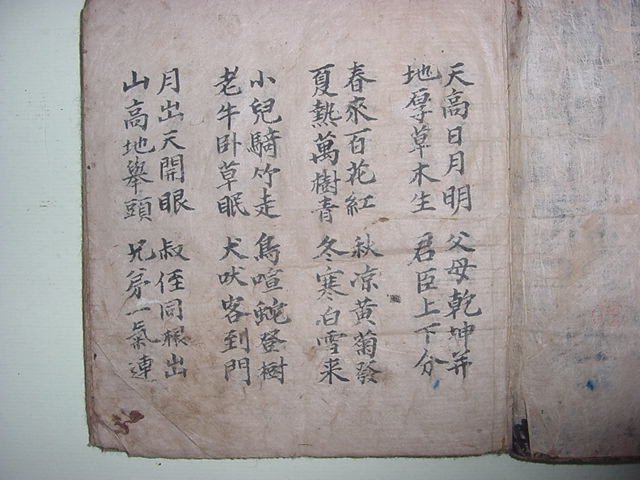 天高日月明 父母乾坤并
地厚草木生 君臣上下分
春來百花紅 秋凉黄菊發
夏熱萬樹青 冬寒白雪来
小兒騎竹走 鳥喧蛇登樹
老牛卧草眠 犬吠客到門
月出天開眼 叔侄同根出
山高地舉頭 兄弟一氣連